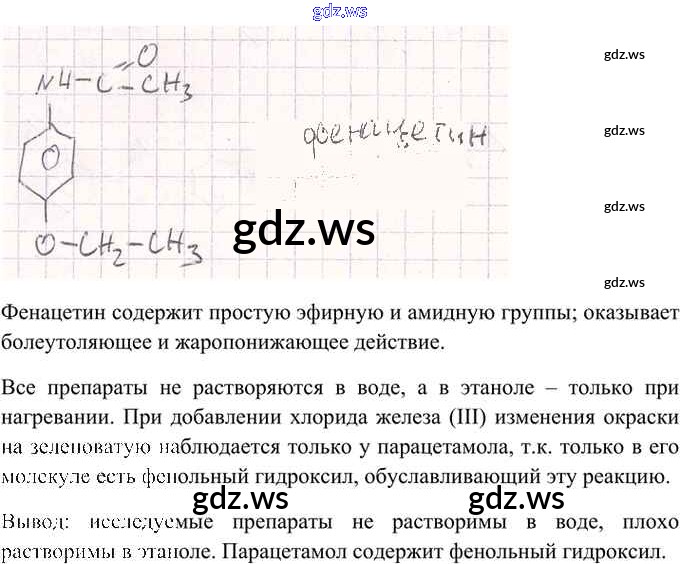 gdz.ws
gdz.ws
NH-C=O-CH3
фенацетин
gdz.ws
gdz.ws
gdz.ws
O-CH2-CH3
gdz.ws
Фенацетин содержит простую эфирную и амидную группы; оказывает
болеутоляющее и жаропонижающее действие.
Все препараты не растворяются в воде, а в этаноле – только при
нагревании. При добавлении хлорида железа (III) изменения окраски
на зеленоватую наблюдается только у парацетамола, т.к. только в его
молекуле есть фенольный гидроксил, обуславливающий эту реакцию.
gdz.ws
gdz.ws
Вывод: исследуемые препараты не растворимы в воде, плохо
растворимы в этаноле. Парацетамол содержит фенольный гидроксил.